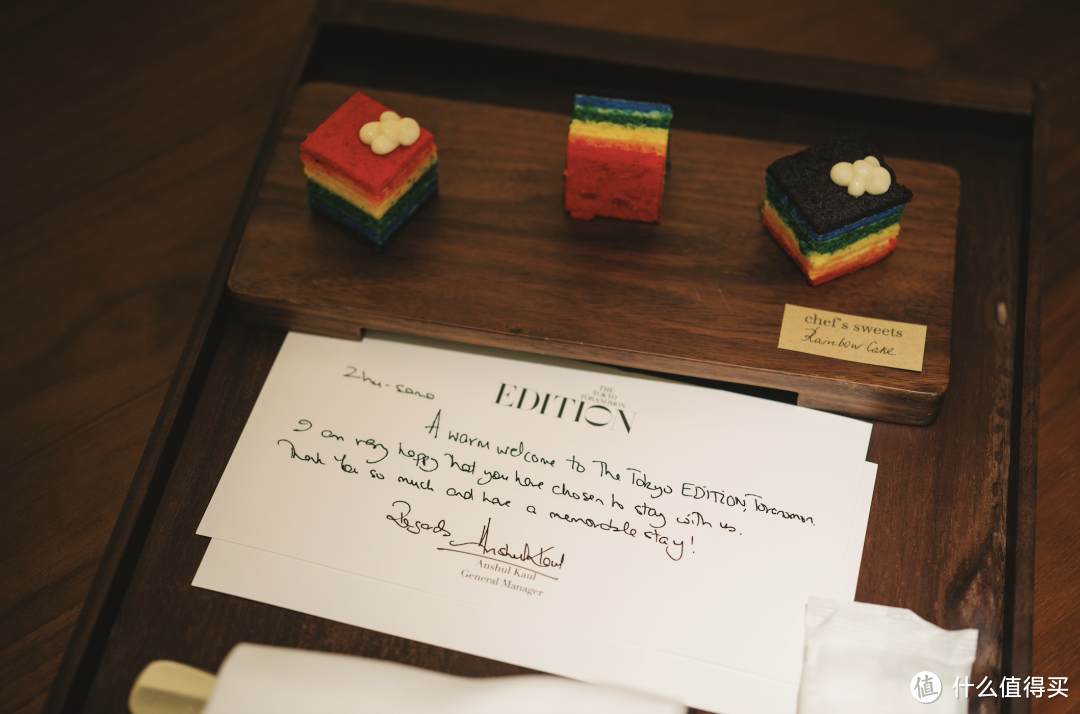 chef's sweets
Rainbow Cake
Zhu-sama
THE
TOKYO
TORANOMON
EDITION
A warm welcome to The Tokyo EDITION, Toranomon.
I am very happy that you have chosen to stay with us.
Thank you so much and have a memorable stay!
Regards
Anshul Kaul
Anshul Kaul
General Manager
值 什么值得买